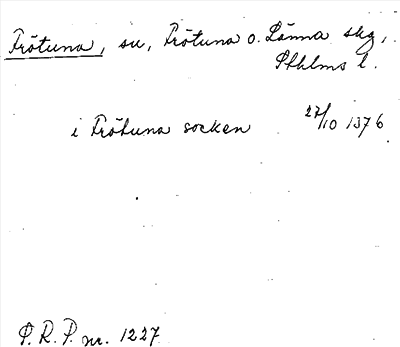 Frötuna, sn, Frötuna o. Länna skg,
Sthlms l.
i Frötuna socken 27/10 1376
P. R. P. nr. 1227